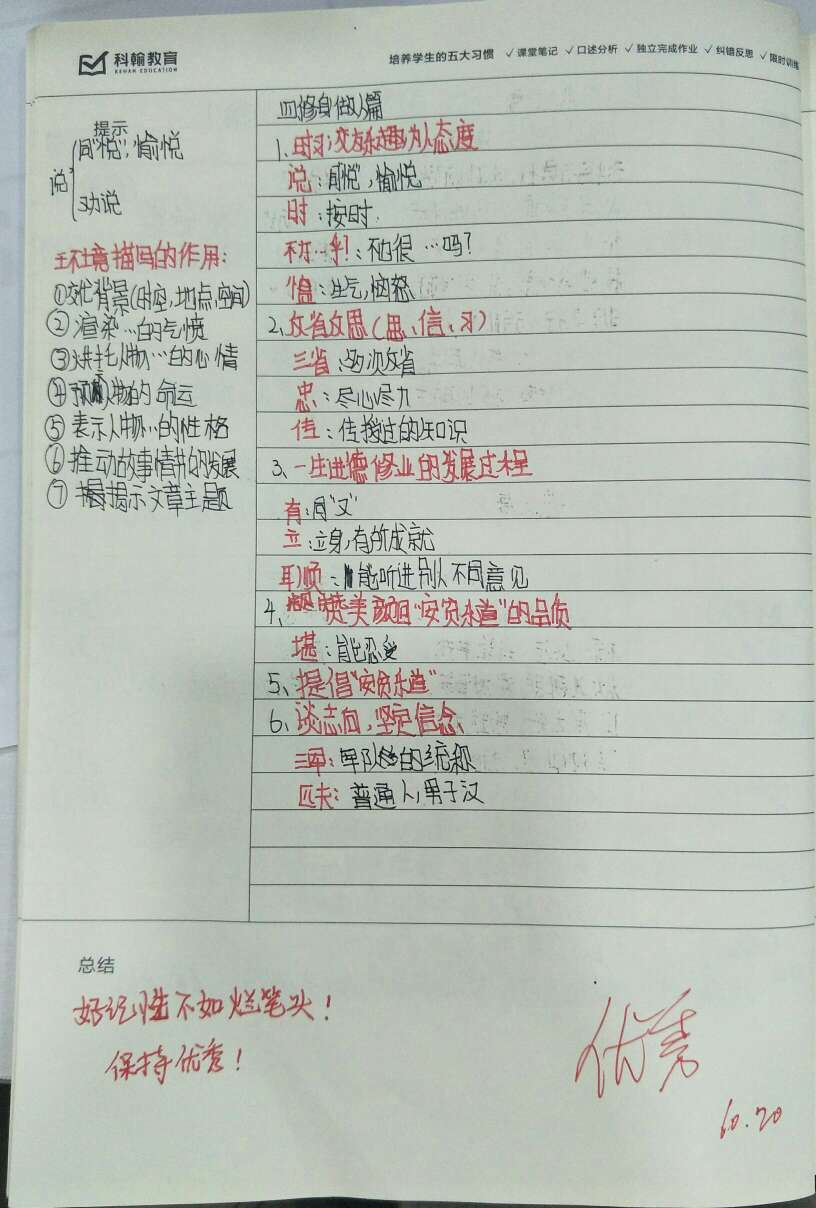 科翰教育
KEHAN EDUCATION
培养学生的五大习惯 ✓课堂笔记 ✓口述分析 ✓独立完成作业 ✓纠错反思 ✓限时训练
提示
说 同"悦",愉悦
劝说
环境描写的作用:
①交代背景(时空,地点,空间)
②渲染…的气愤
③烘托人物…的心情
④预示人物的命运
⑤表示人物…的性格
⑥推动故事情节的发展
⑦揭示文章主题
四修身做人篇
1、时习;交友乐趣;为人态度
说:同"悦",愉悦
时:按时.
不亦…乎!:不也很…吗?
愠:生气,恼怒
2、反省反思(思、信、习)
三省:多次反省
忠:尽心尽力
传:传授过的知识
3、一生进德修业的发展过程
有:同"又"
立:立身,有所成就
耳顺:能听进别人不同意见
4、赞美颜回"安贫乐道"的品质
堪:能忍受
5、提倡"安贫乐道"
6、谈志向,坚定信念
三军:军队的统称
匹夫:普通人,男子汉
总结
好记性不如烂笔头!
保持优秀!
优秀
10.20